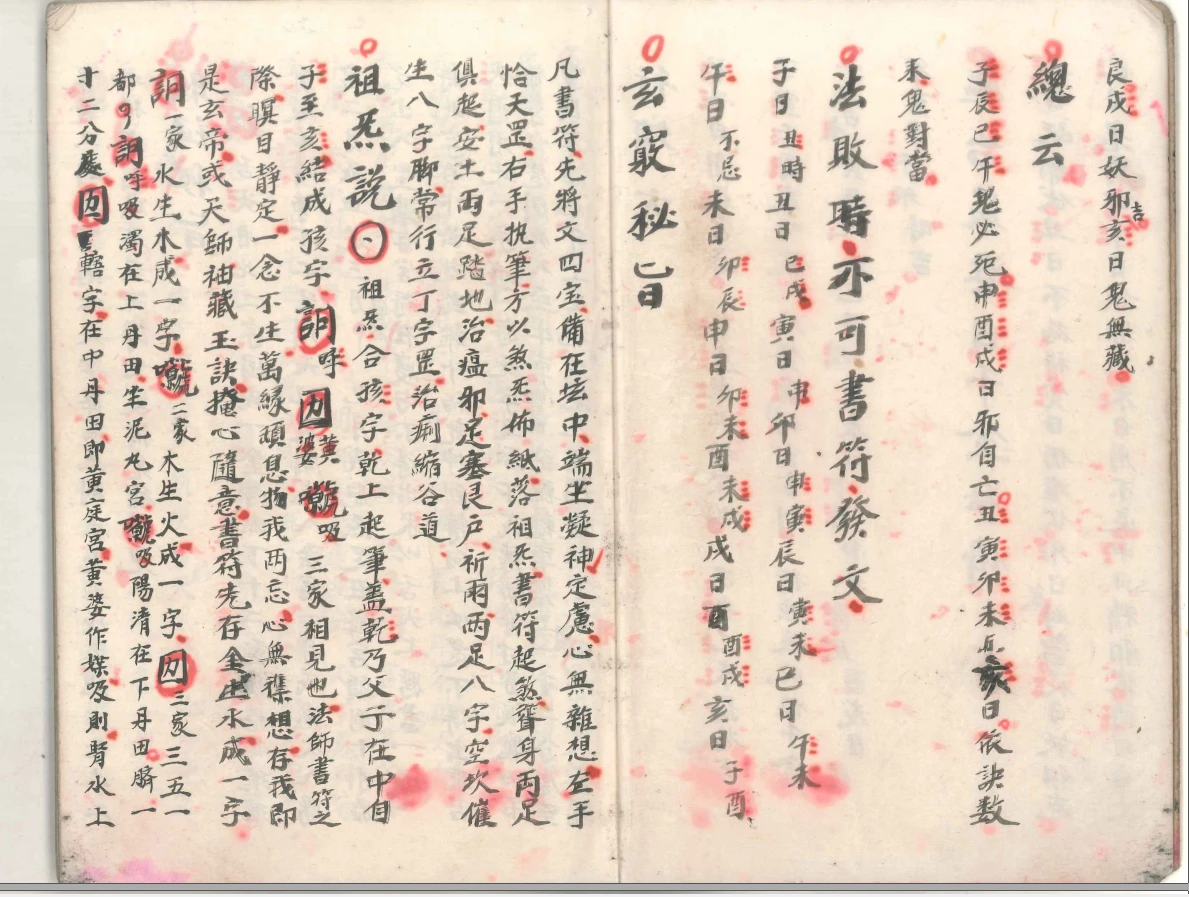 良戌日妖邪亥吉日鬼無藏
總云
子辰巳午鬼必死申酉戌日邪自亡丑寅卯未亥日依訣数
未鬼對當
法敗時亦可書符發文
子日丑時丑日巳戌寅日申卯日申寅辰日寅未巳日午未
午日不忌未日卯辰申日卯未酉未戌戌日酉酉戌亥日子酉
玄竅秘旨
凡書符先將文四宝備在坛中端坐凝神定慮心無雜想左手
恰天罡右手执筆方以煞炁佈紙落祖炁書符起煞聳身两足
俱起安土両足踏地治瘟邪足塞艮户祈雨兩足八字空坎催
生八字脚常行立丁字罡治痢縮谷道
祖炁説 祖炁合孩字乾上起筆盖乾乃父子在中自
子至亥結成孩字 呼 婆黄 吸 三家相見也法師書符之
際瞑目靜定一念不生萬緣頓息物我两忘心無襍想存我即
是玄帝或天師袖藏玉訣搐心隨意書符先存金生水成一字
一家水生木成一字 二家木生火成一字 三家三五一
都 呼吸濁在上丹田坒泥丸宮 吸陽清在下丹田臍一
十二分處 字在中丹田即黄庭宮黄婆作媒吸則腎水上